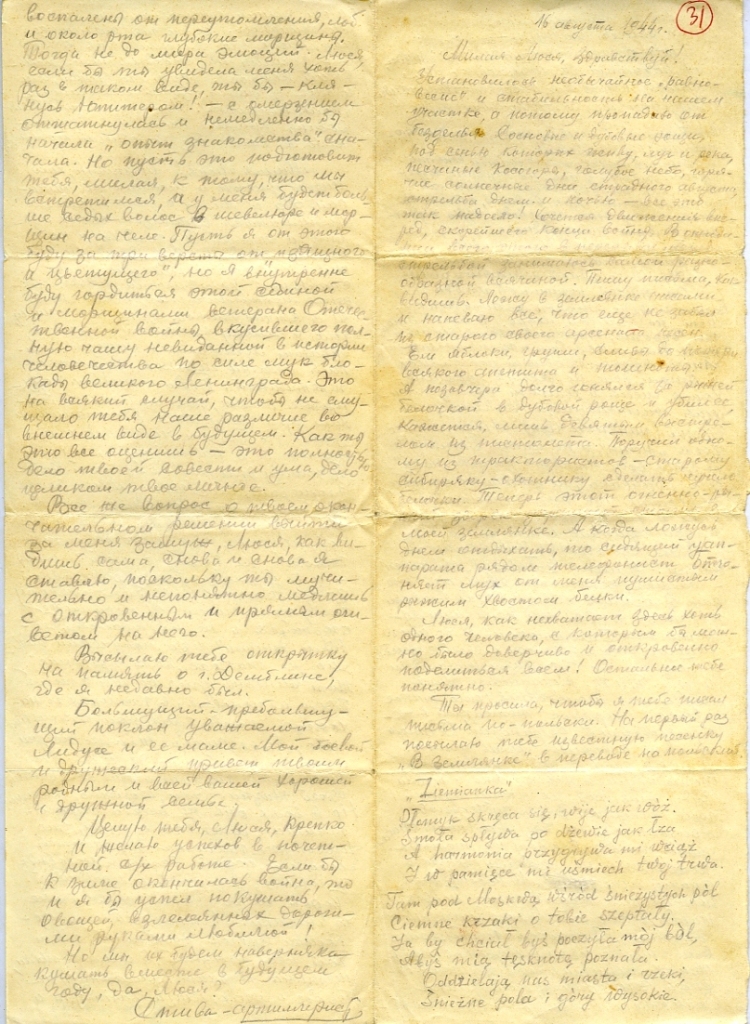 воспалены от переутомления, лоб
и около рта глубокие морщины.
Тогда не до мира эмоций. Люся,
если бы ты увидела меня хоть
раз в таком виде, ты бы – кля-
нусь Юпитером! – с омерзением
отшатнулась и немедленно бы
начали „опыт знакомства" сна-
чала. Но пусть это подготовит
тебя, милая, к тому, что мы
встретимся, а у меня будет боль-
ше седых волос в шевелюре и мор-
щин на челе. Пусть я от этого
буду за три версты от „изящного
и цветущего", но я внутренне
буду гордиться этой сединой
и морщинами ветерана Отече-
ственной войны вкусившего пол-
ную чашу невиданной в истории
человечества по силе мук бло-
кады великого Ленинграда. Это
на всякий случай, чтобы не сму-
щало тебя наше различие во
внешнем виде в будущем. Как ты
это все оценишь – это полностью
дело твоей совести и ума, дело
целиком твое личное.
Все же вопрос о твоем окон-
чательном решении выйти
за меня замуж, Люся, как ви-
дишь сама, снова и снова я
ставлю, поскольку ты мучи-
тельно и непонятно медлишь
с откровенным и прямым от-
ветом на него.
Высылаю тебе открытку
на память о г. Демблине,
где я недавно был.
Большущий-пребольшу-
щий поклон уважаемой
Лидусе и ее маме. Мой боевой
и дружеский привет твоим
родным и всей вашей хорошей
и дружной семье.
Целую тебя, Люся, крепко
и желаю успехов в почет-
ной с/х работе. Если бы
к зиме окончилась война, то
и я бы успел покушать
овощей взлелеянных дороги-
ми руками любимой!
Но мы их будем наверняка
кушать вместе в будущем
году, да, Люся?
Стива-артиллерист
31
16 августа 1944 г.
Милая Люся, здравствуй!
Установилось необычайное „равно-
весие" и стабильность на нашем
участке, а потому пропадаю от
безделья. Сосновые и дубовые рощи,
под сенью которых живу, луг и река,
песчаные косогоры, голубое небо, горя-
чие солнечные дни страдного августа,
стрельба днем и ночью – все это
так надоело! Хочется движения впе-
ред, скорейшего конца войны. В
стрельбой занимаюсь всякой разно-
образной всячиной. Пишу письма, как
видишь. Лежу в землянке
и напеваю все, что еще не забыл
из старого своего арсенала песен.
Ем яблоки, груши, сливы
всякого
А позавчера долго гонялся за рыжей
белочкой в дубовой роще и убил ее,
кажется, лишь девятым выстре-
лом из пистолета. Поручил одно-
му из трактористов – старому
сибиряку-охотнику сделать чучело
белочки. Теперь этот
моей землянке. А когда ложусь
днем отдыхать, то сидящий у ап-
парата рядом телефонист отго-
няет мух от меня пушистым
рыжим хвостом белки.
Люся, как нехватает здесь хоть
одного человека, с которым бы мож-
но было доверчиво и откровенно
поделиться всем! Остальное тебе
понятно.
Ты просила, чтобы я тебе писал
письма по-польски. На первый раз
посылаю тебе известную песенку
„В землянке" в переводе на польский
„Ziemianka".
Płomyk skręca się, wije jak wąż.
Smoła spływa po drzewie jak łza
A harmonia przygrywa mi wciąż
I w pamięci mi uśmiech twój trwa.
Tam pod Moskwą wśród śnieżystych pól
Ciemne krzaki o tobie szeptały.
Ja by chciał byś poczyła mój ból,
Abyś mią tęsknotę poznała.
Oddzielają nas miasta i rzeki,
Śnieżne pola i góry wysokie.